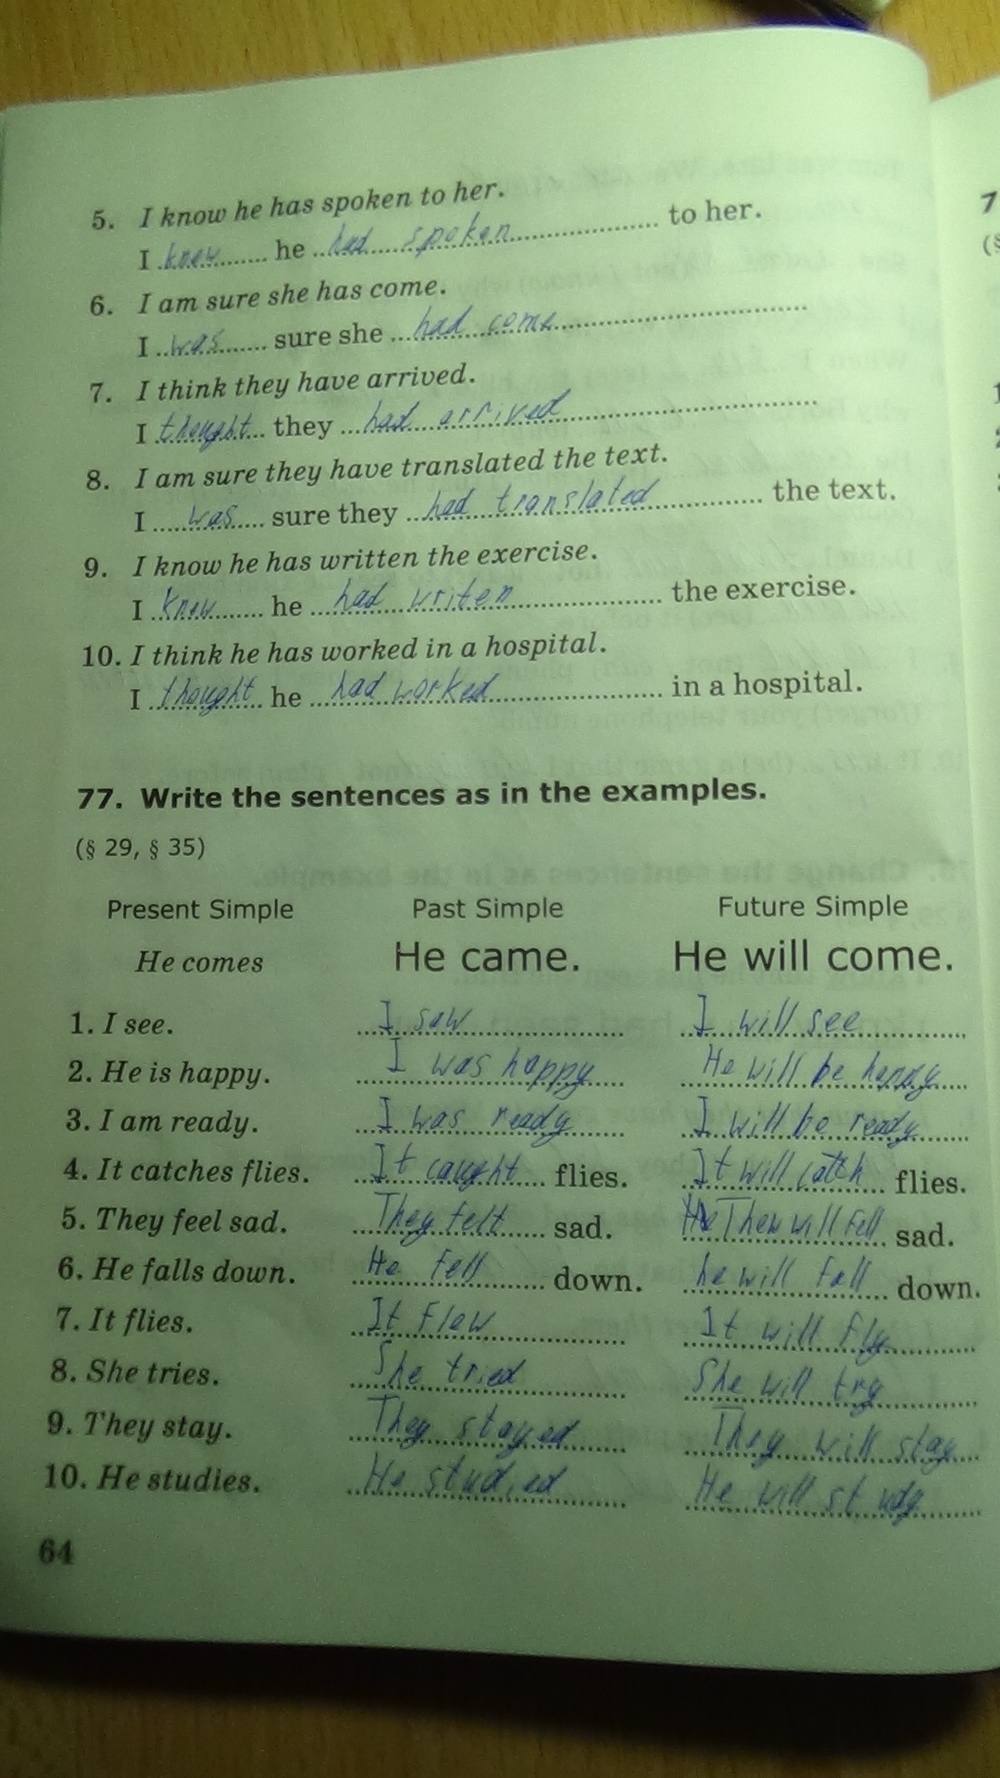 5. I know he has spoken to her.
I knew he had spoken to her.
6. I am sure she has come.
I was sure she had come
7. I think they have arrived.
I thought they had arrived
8. I am sure they have translated the text.
I was sure they had translated the text.
9. I know he has written the exercise.
I knew he had writen the exercise.
10. I think he has worked in a hospital.
I thought he had worked in a hospital.
77. Write the sentences as in the examples.
(§ 29, § 35)
Present Simple Past Simple Future Simple
He comes He came. He will come.
1. I see. I saw I will see
2. He is happy. I was happy He will be happy
3. I am ready. I was ready I will be ready
4. It catches flies. It caught flies. It will catch flies.
5. They feel sad. They felt sad. They will fell sad.
6. He falls down. He fell down. he will fall down.
7. It flies. It flew It will fly
8. She tries. She tried She will try
9. They stay. They stayed They will stay
10. He studies. He studied He will study
64
7
(§